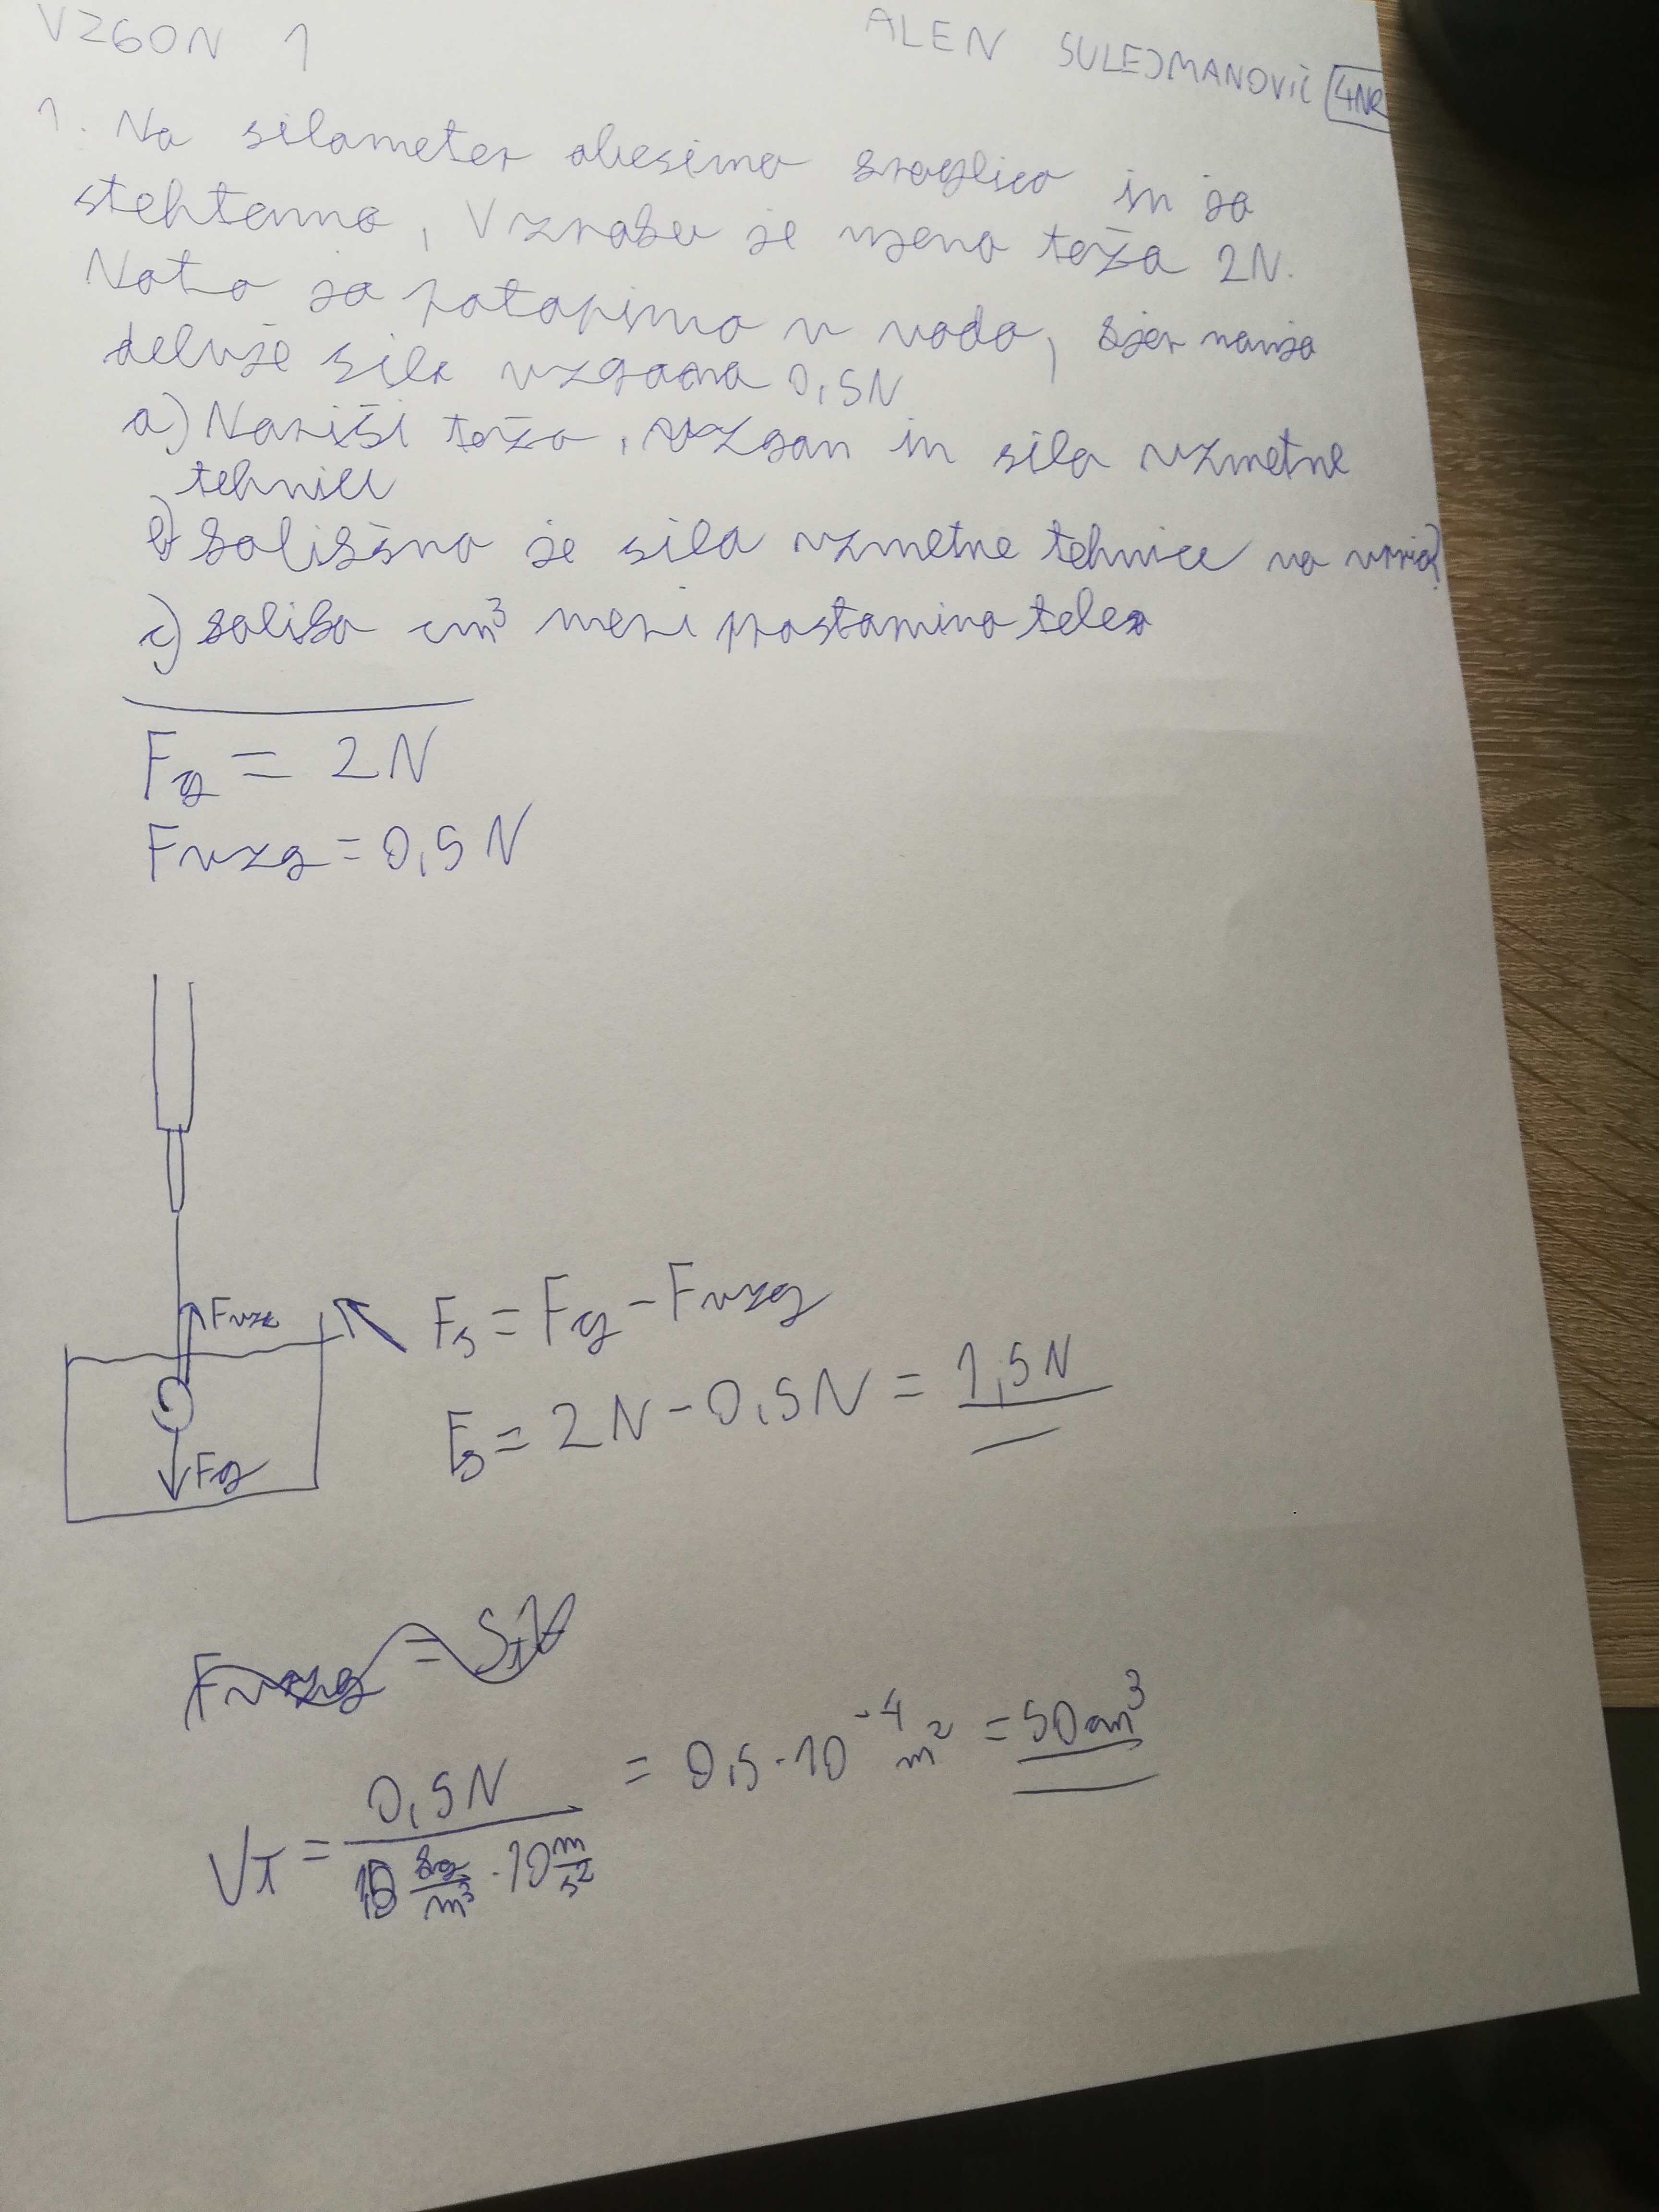 VZGON 1
ALEN SULEJMANOVIĆ 4NR
1. Na silometer obesimo kroglico in jo
stehtamo, V zraku je njena teža 2N.
Nato jo potopimo v vodo, kjer nanjo
deluje sila vzgona 0,5N
a) Nariši težo, vzgon in sila vzmetne
tehnice
b) kolikšna je sila vzmetne tehnice na
c) koliko cm³ meri prostornina telesa
Fg = 2N
Fvzg = 0,5N
Fvzg
Fg
Fs = Fg - Fvzg
Fs = 2N - 0,5N = 1,5N
Fvzg =
VT = 0,5N / kg/m³ · 10 m/s² = 0,5 · 10⁻⁴ m² = 50 cm³